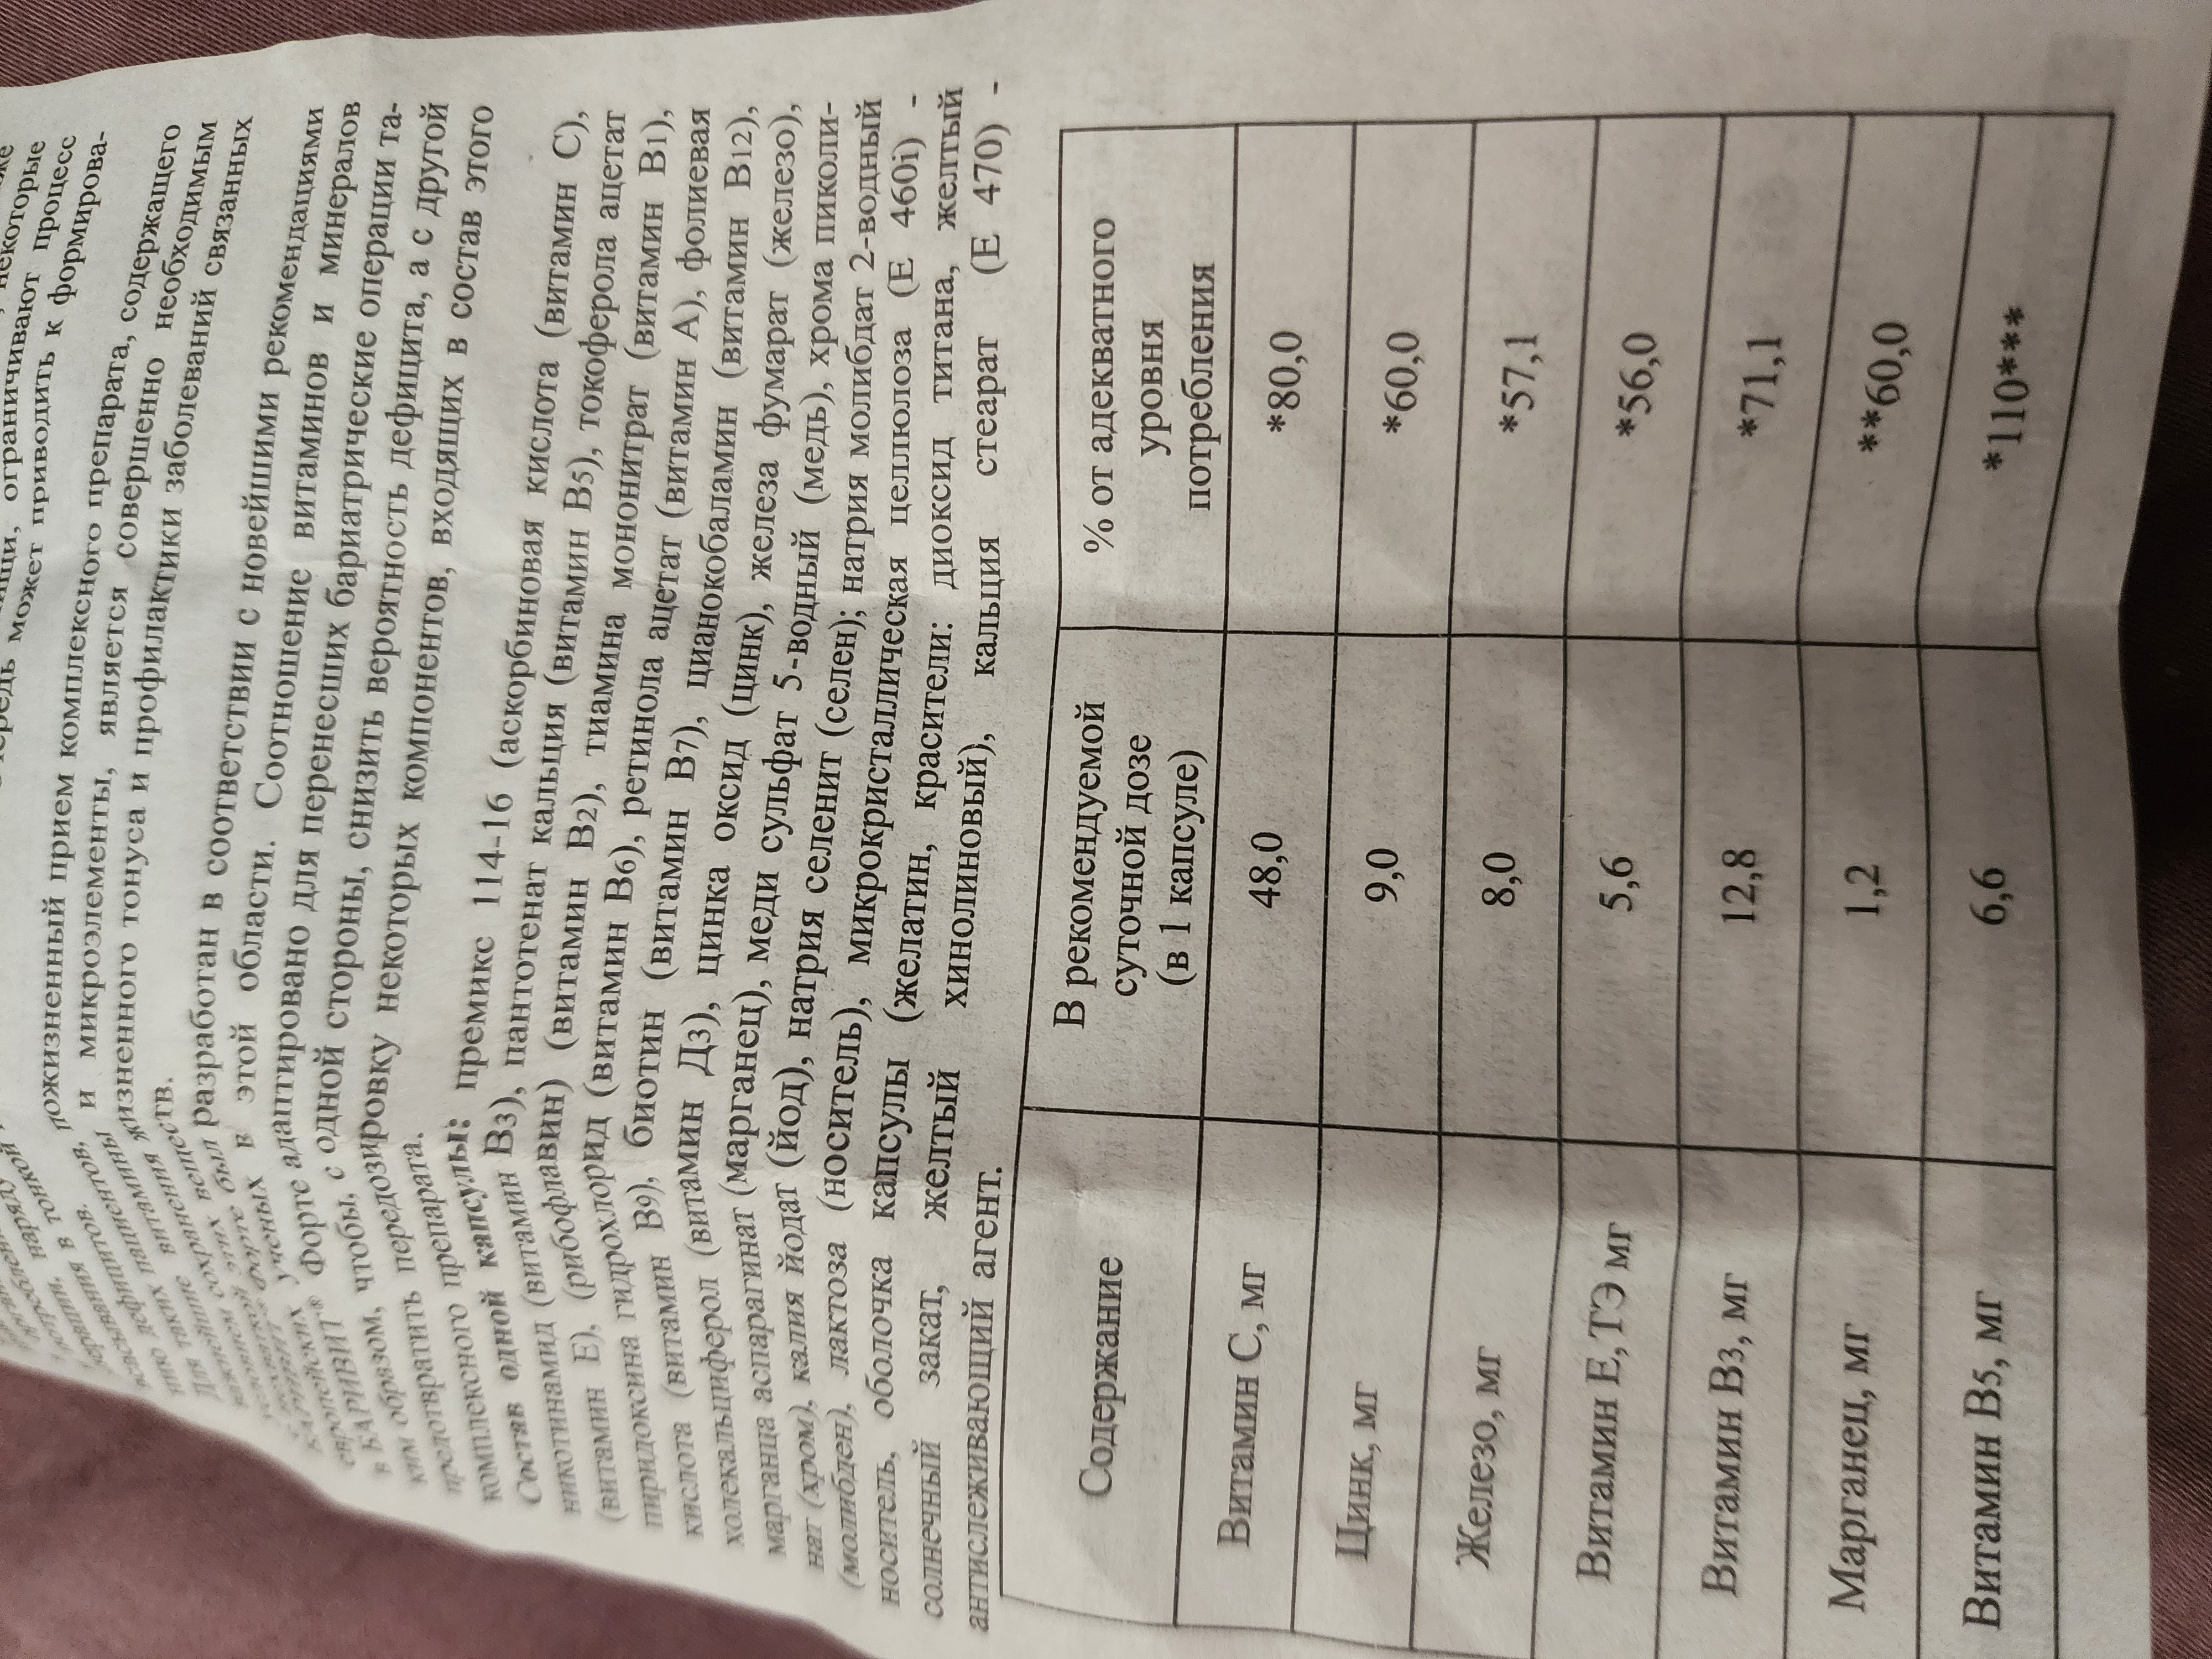 некоторые
ограничивают процесс
может приводить к формирова-
пожизненный прием комплексного препарата, содержащего
и микроэлементы, является совершенно необходимым
жизненного тонуса и профилактики заболеваний связанных
веществ.
был разработан в соответствии с новейшими рекомендациями
ученых в этой области. Соотношение витаминов и минералов
Форте адаптировано для перенесших бариатрические операции та-
ким образом, чтобы, с одной стороны, снизить вероятность дефицита, а с другой
предотвратить передозировку некоторых компонентов, входящих в состав этого
комплексного препарата.
Состав одной капсулы: премикс 114-16 (аскорбиновая кислота (витамин С),
никотинамид (витамин В3), пантотенат кальция (витамин В5), токоферола ацетат
(витамин Е), (рибофлавин) (витамин В2), тиамина мононитрат (витамин В1),
пиридоксина гидрохлорид (витамин В6), ретинола ацетат (витамин А), фолиевая
кислота (витамин В9), биотин (витамин В7), цианокобаламин (витамин В12),
холекальциферол (витамин Д3), цинка оксид (цинк), железа фумарат (железо),
марганца аспарагинат (марганец), меди сульфат 5-водный (медь), хрома пиколи-
нат (хром), калия йодат (йод), натрия селенит (селен); натрия молибдат 2-водный
(молибден), лактоза (носитель), микрокристаллическая целлюлоза (Е 460i) -
носитель, оболочка капсулы (желатин, красители: диоксид титана, желтый
солнечный закат, желтый хинолиновый), кальция стеарат (Е 470) -
антислеживающий агент.
Содержание В рекомендуемой суточной дозе (в 1 капсуле) % от адекватного уровня потребления
Витамин С, мг 48,0 *80,0
Цинк, мг 9,0 *60,0
Железо, мг 8,0 *57,1
Витамин Е, ТЭ мг 5,6 *56,0
Витамин В3, мг 12,8 *71,1
Марганец, мг 1,2 **60,0
Витамин В5, мг 6,6 *110***